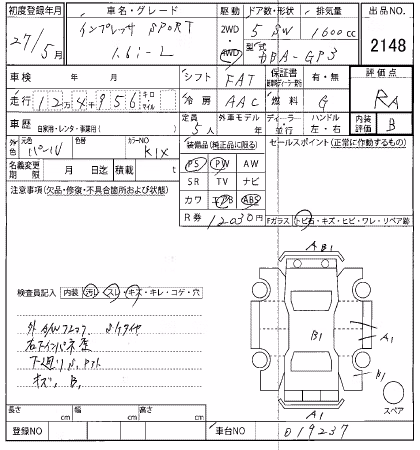 初度登録年月 車名・グレード 駆動 ドア数・形状 排気量 出品NO.
27/5月 インプレッサ SPORT 2WD・4WD 5 SW 1600cc 2148
1.6i-L 型式 DBA-GP3
車検 年 月 シフト FAT 保証書 有・無 評価点
走行 12万4千956キロ マイル 冷房 AAC 燃料 G RA
車歴 自家用・レンタ・事業用( ) 定員 5人 外車モデル 年 ディーラー・並行 ハンドル 左・右 内装評価 B
外色 元色 パール 色替 カラーNO K1X 装備品(純正品に限る) セールスポイント(正常に作動するもの)
名義変更期限 月 日迄 積載 t PS PW AW
注意事項(欠品・修復・不具合箇所および状態) SR TV ナビ
カワ エアB ABS
R券 12030円 Fガラス(トビ石・キズ・ヒビ・ワレ・リペア跡
AB1
検査員記入 内装 汚レ・スレ・キズ・キレ・コゲ・穴
外 A/W
B1 A1
キズ、B1 B1
A1 スペア
長さ cm 幅 cm 高さ cm
登録NO 車台NO 019237